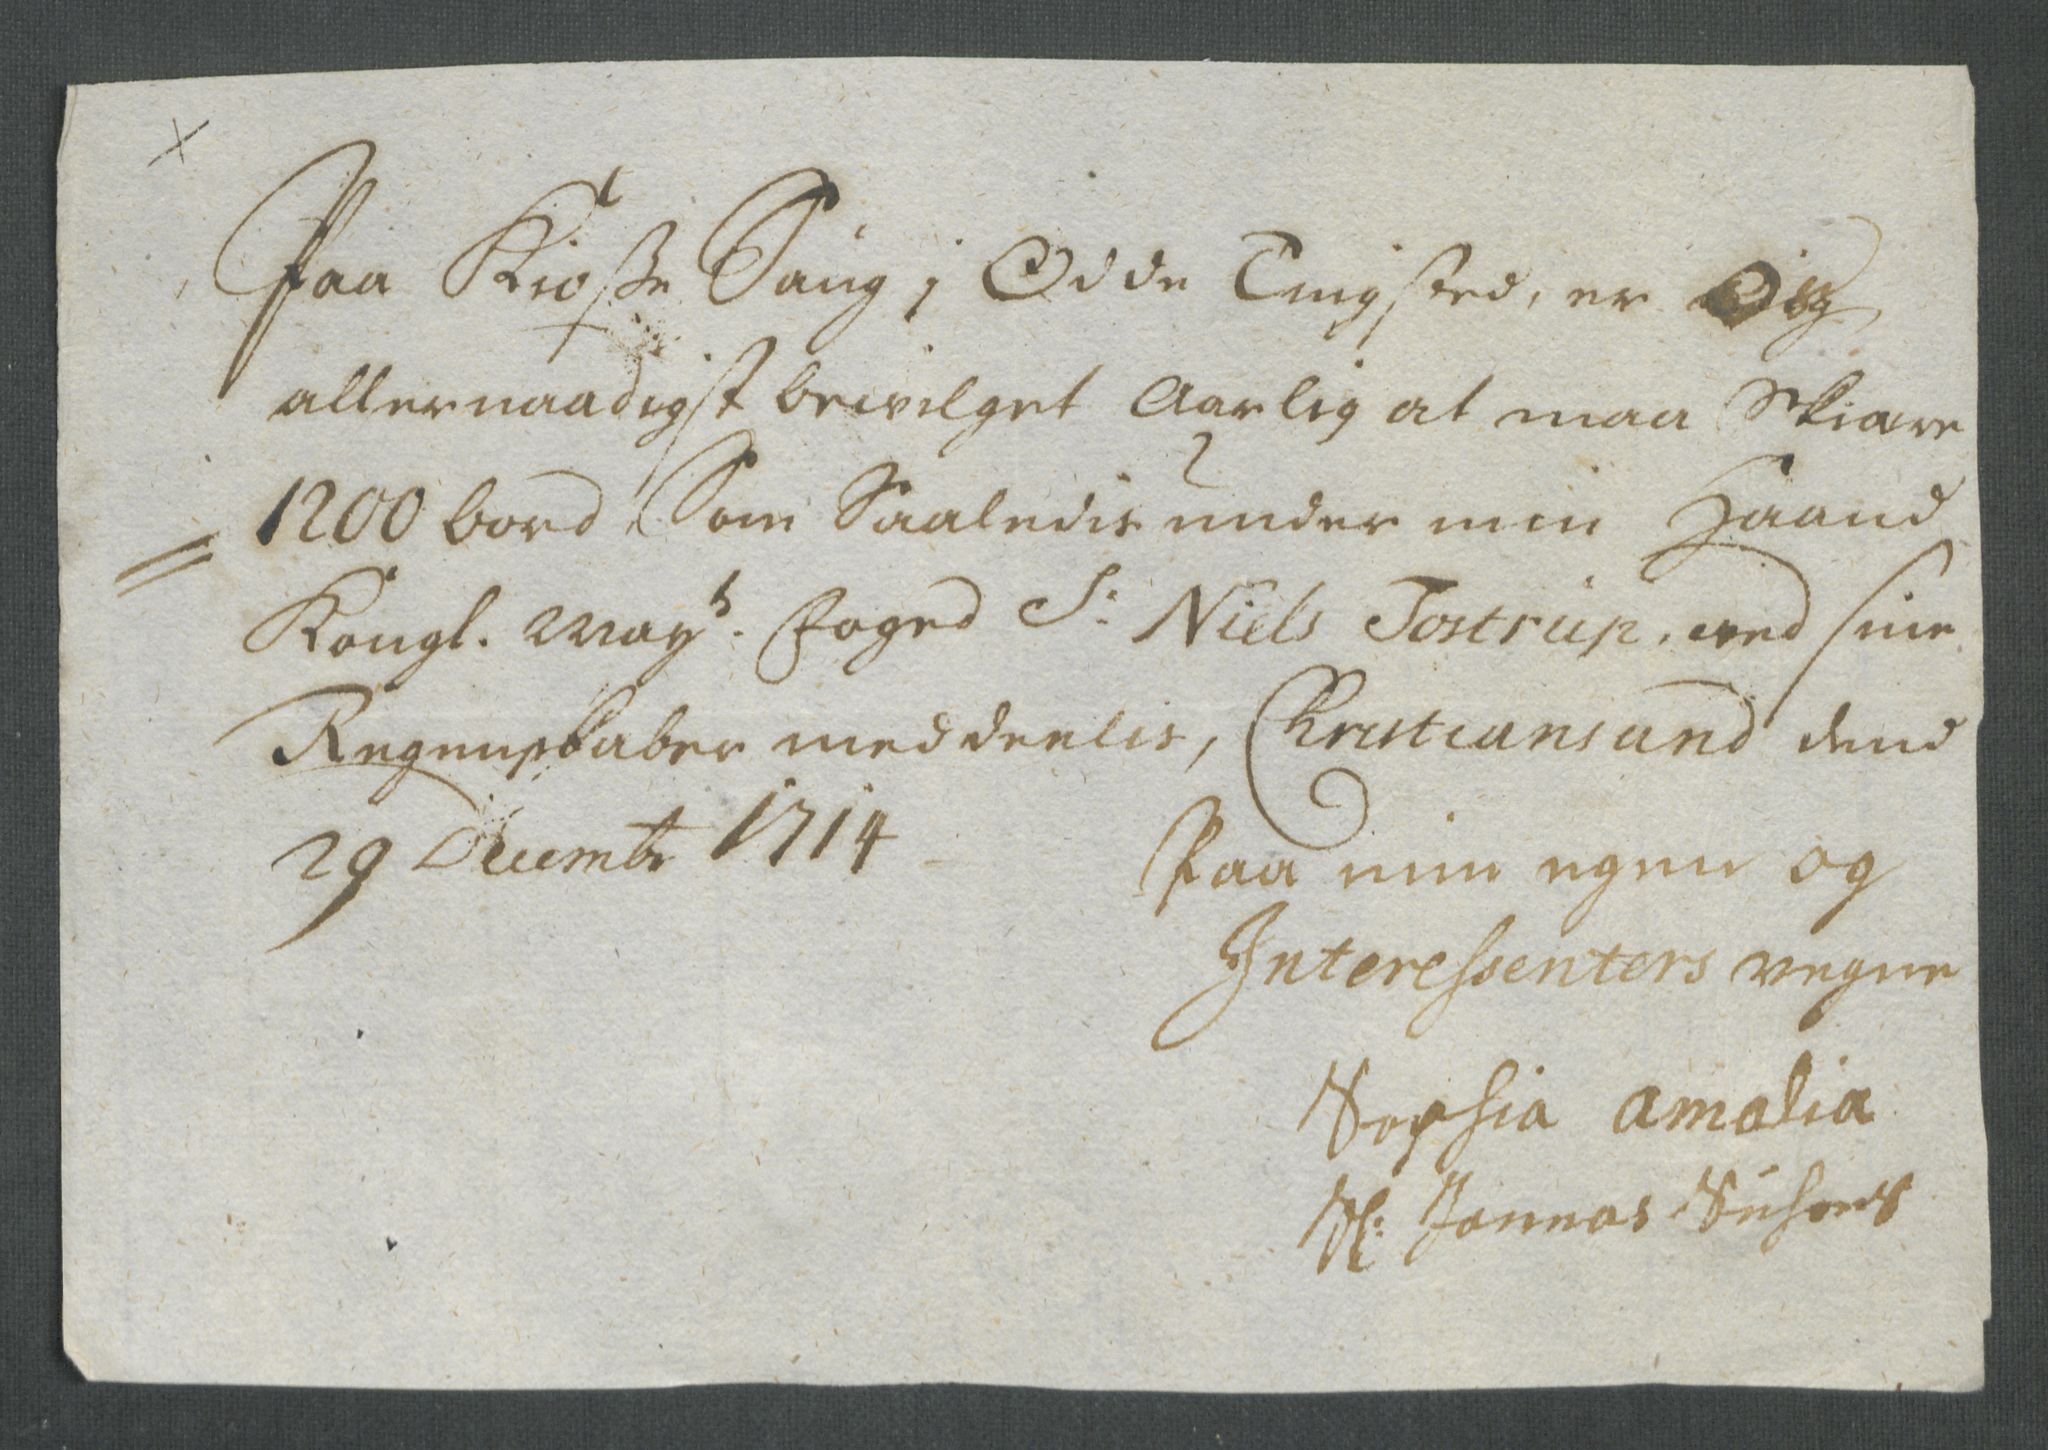 Paa Kioße Saug i Odde Tingsted, er
allernaadigst bevilget Aarlig at maa Skiære
1200 bord, Som Saaledis under min Haand
Kongl. Mayts. Foged Sr: Niels Tostrup, ved sine
Regenskaber meddeelis, Christiansand dend
29 Decembr 1714
Paa min egen og
Interessenters vegne
Sophia Amalia
Sl: Jonnas